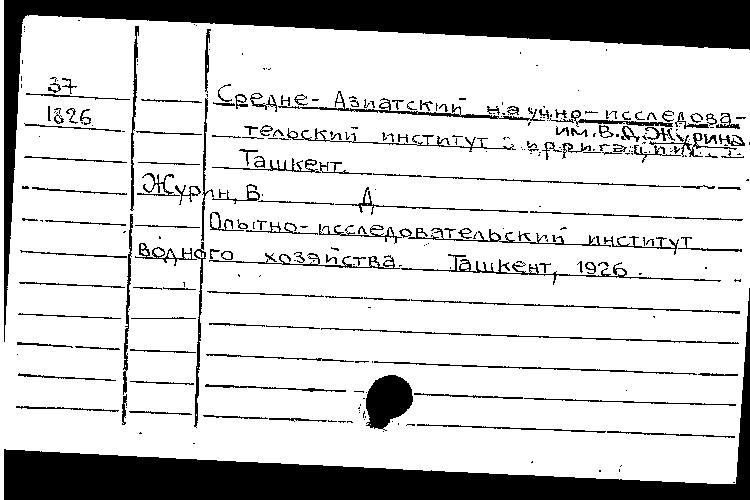 37
1826
Средне-Азиатский научно-исследова-
им. В.Д. Журина.
тельский институт ирригации
Ташкент.
Журин, В. Д
Опытно-исследовательский институт
водного хозяйства. Ташкент, 1926.